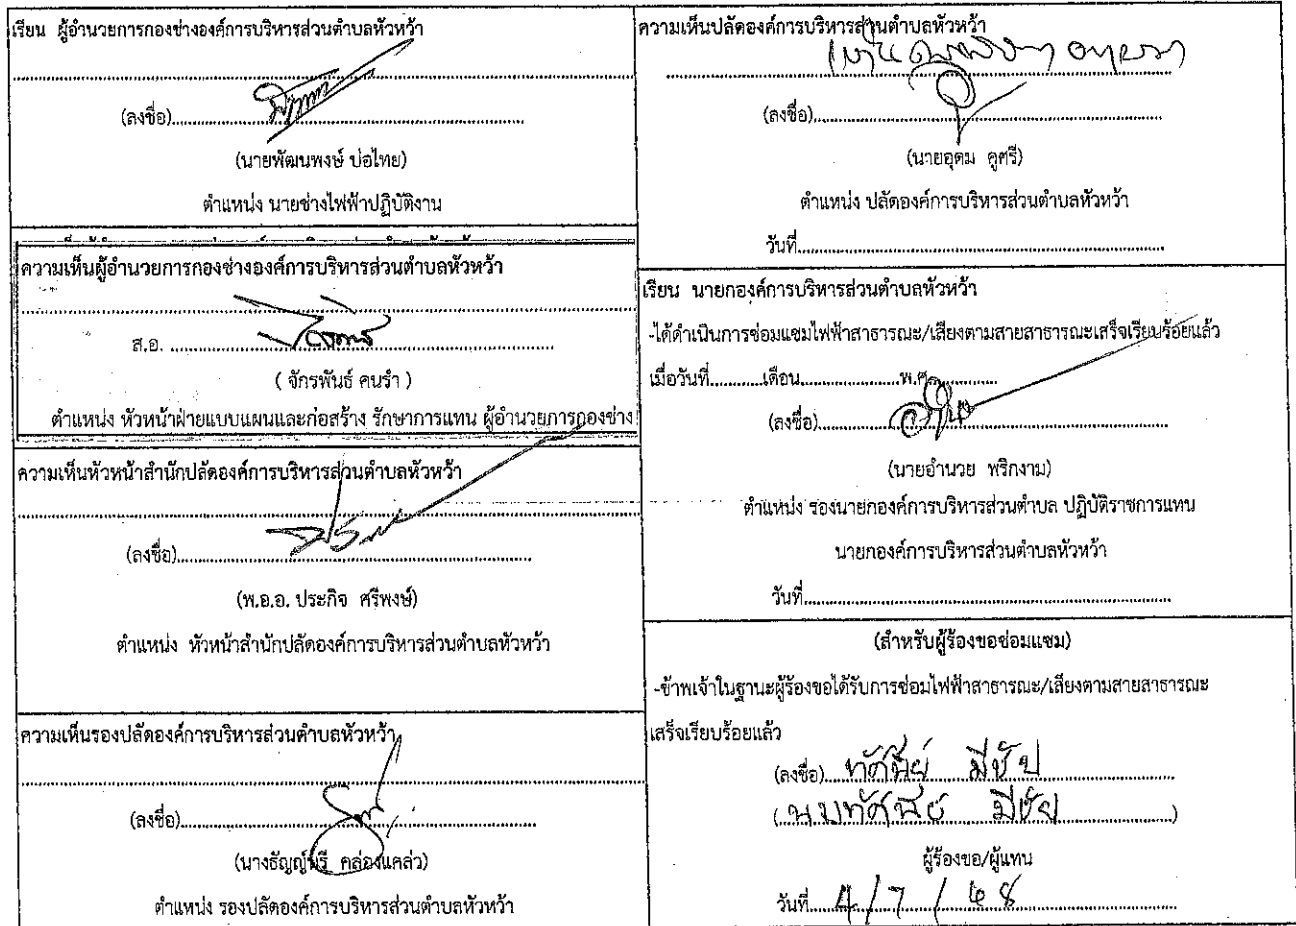 เรียน ผู้อำนวยการกองช่างองค์การบริหารส่วนตำบลหัวหว้า
(ลงชื่อ)
(นายพัฒนพงษ์ บ่อไทย)
ตำแหน่ง นายช่างไฟฟ้าปฏิบัติงาน
ความเห็นผู้อำนวยการกองช่างองค์การบริหารส่วนตำบลหัวหว้า
ส.อ.
( จักรพันธ์ คนรำ )
ตำแหน่ง หัวหน้าฝ่ายแบบแผนและก่อสร้าง รักษาการแทน ผู้อำนวยการกองช่าง
ความเห็นหัวหน้าสำนักปลัดองค์การบริหารส่วนตำบลหัวหว้า
(ลงชื่อ)
(พ.อ.อ. ประกิจ ศรีพงษ์)
ตำแหน่ง หัวหน้าสำนักปลัดองค์การบริหารส่วนตำบลหัวหว้า
ความเห็นรองปลัดองค์การบริหารส่วนตำบลหัวหว้า
(ลงชื่อ)
(นางธัญญ์นรี คล่องแคล่ว)
ตำแหน่ง รองปลัดองค์การบริหารส่วนตำบลหัวหว้า
ความเห็นปลัดองค์การบริหารส่วนตำบลหัวหว้า
(ลงชื่อ)
(นายอุดม ดูศรี)
ตำแหน่ง ปลัดองค์การบริหารส่วนตำบลหัวหว้า
วันที่
เรียน นายกองค์การบริหารส่วนตำบลหัวหว้า
-ได้ดำเนินการซ่อมแซมไฟฟ้าสาธารณะ/เสียงตามสายสาธารณะเสร็จเรียบร้อยแล้ว
เมื่อวันที่............เดือน......................พ.ศ...............
(ลงชื่อ)
(นายอำนวย พริกงาม)
ตำแหน่ง รองนายกองค์การบริหารส่วนตำบล ปฏิบัติราชการแทน
นายกองค์การบริหารส่วนตำบลหัวหว้า
วันที่
(สำหรับผู้ร้องขอซ่อมแซม)
-ข้าพเจ้าในฐานะผู้ร้องขอได้รับการซ่อมไฟฟ้าสาธารณะ/เสียงตามสายสาธารณะ
เสร็จเรียบร้อยแล้ว
(ลงชื่อ) มีชัย
( มีชัย )
ผู้ร้องขอ/ผู้แทน
วันที่ 4/7/๖๘